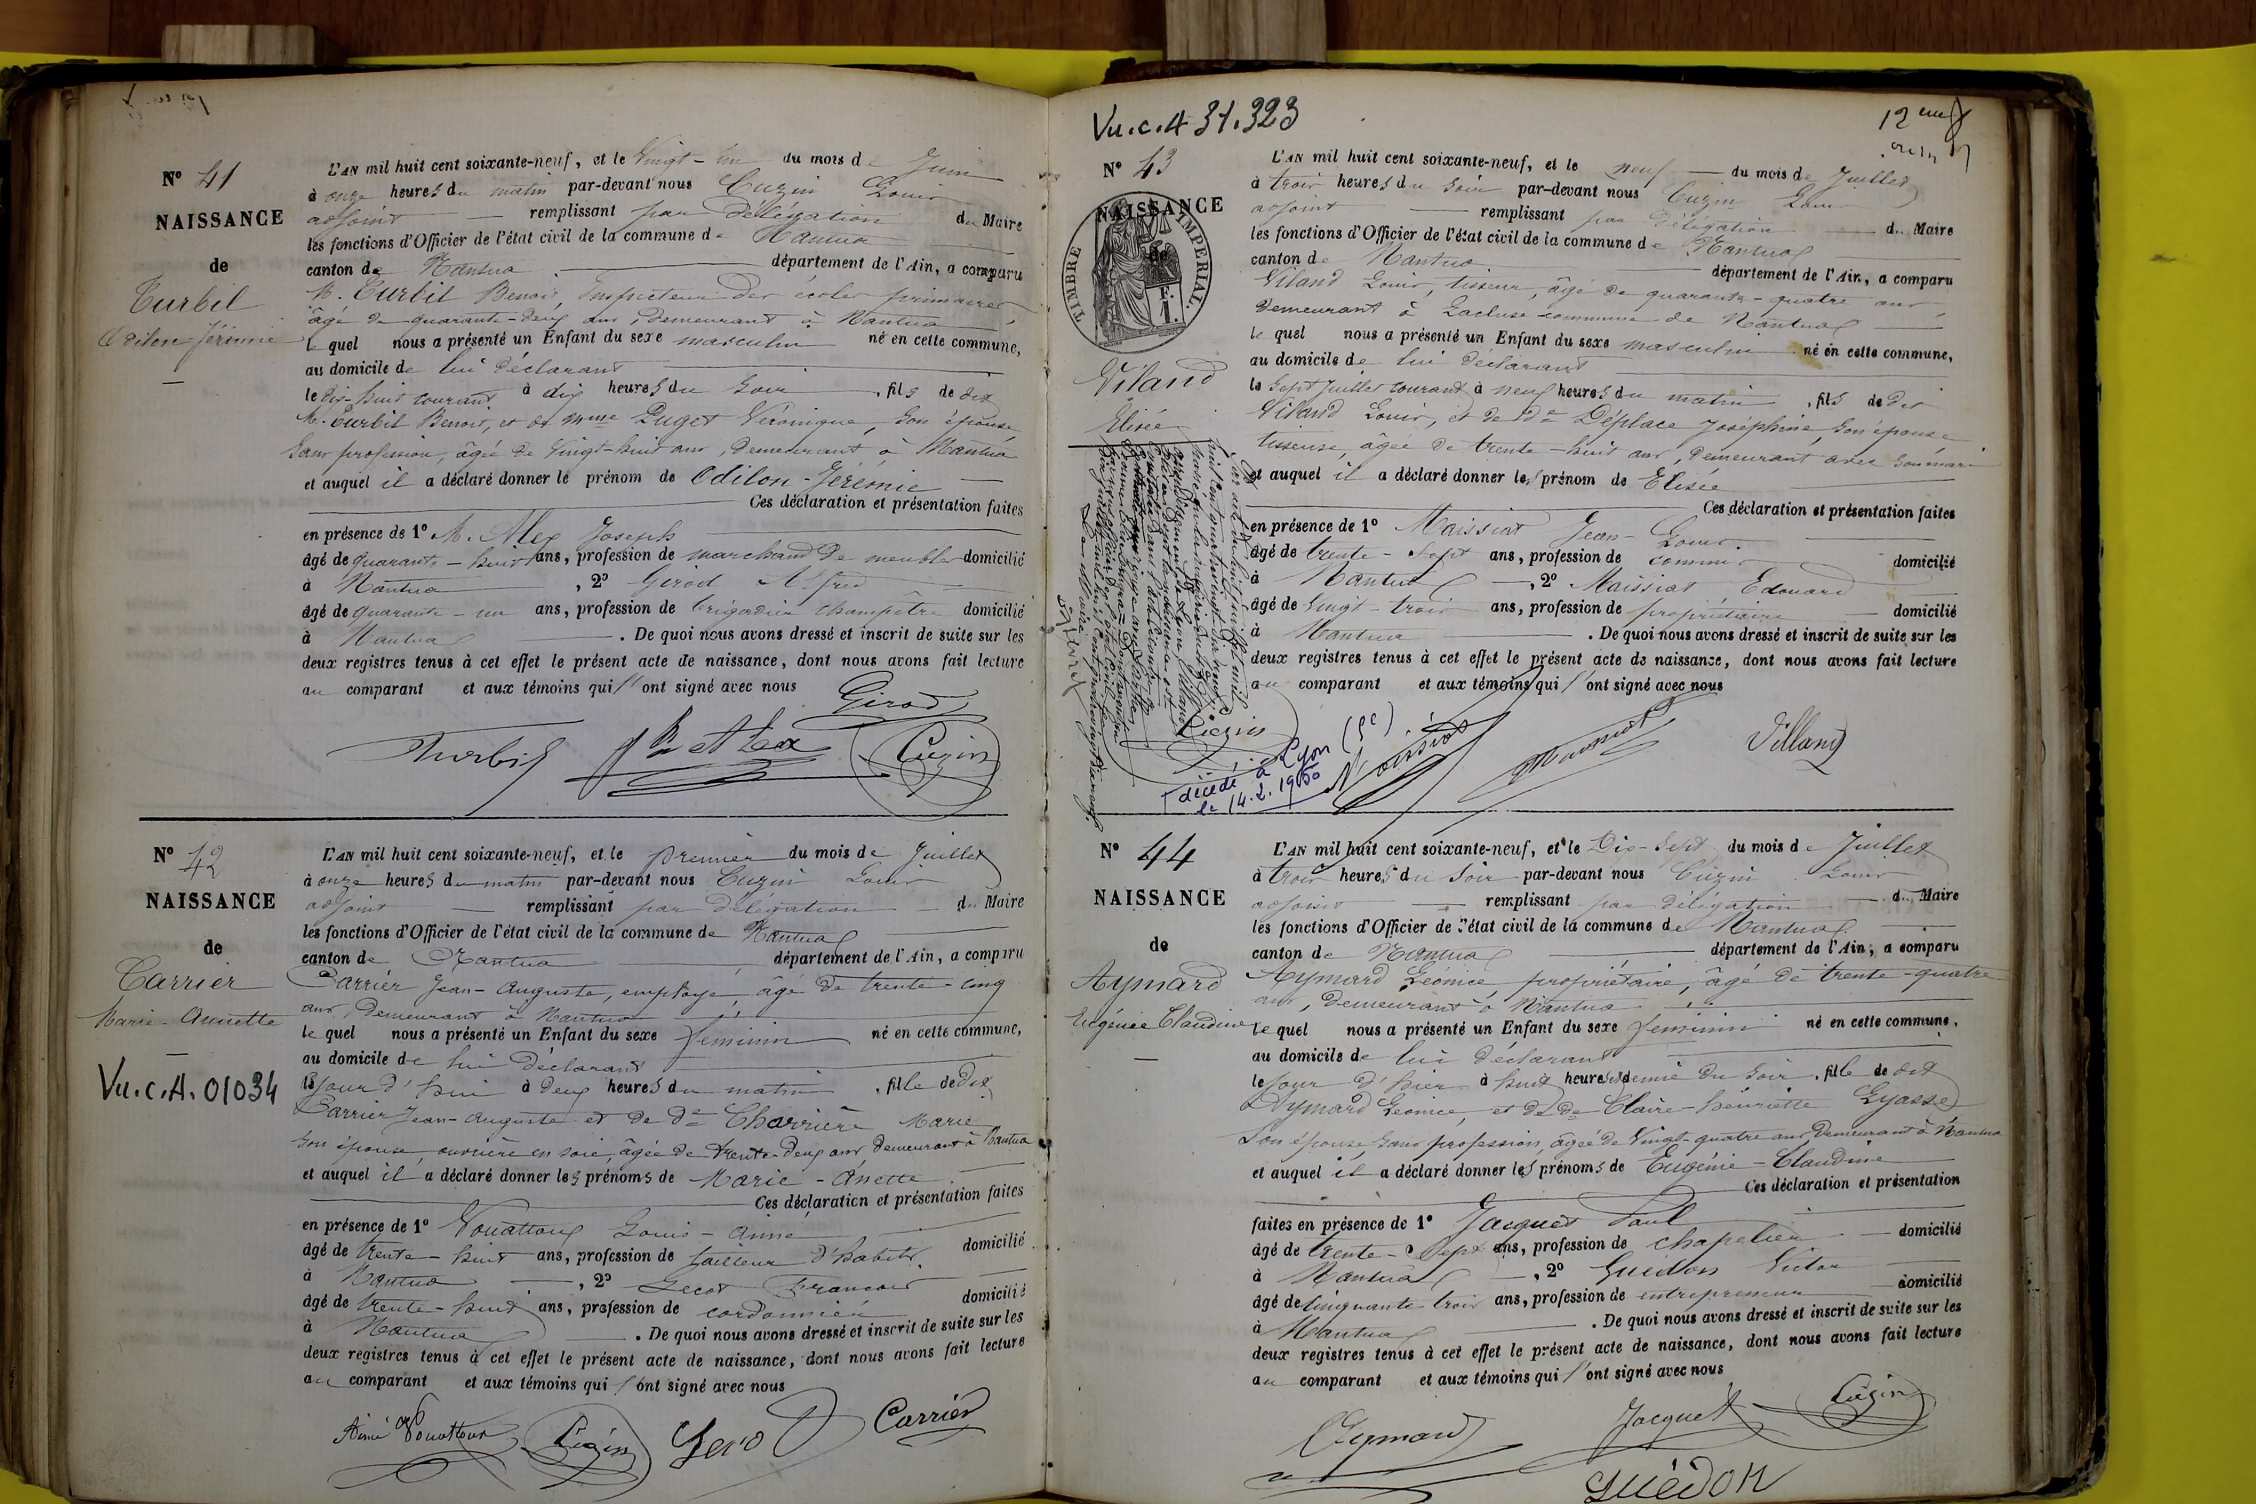 N° 41
NAISSANCE
de
Turbil
Odilon Jérémie
L'AN mil huit cent soixante-neuf, et le Vingt-un du mois de Juin
à onze heures du matin par-devant nous Cuzin Louis
adjoint remplissant par délégation du Maire
les fonctions d'Officier de l'état civil de la commune de Nantua
canton de Nantua département de l'Ain, a comparu
M. Turbil Benoit, Inspecteur des écoles primaires,
âgé de quarante-deux ans, demeurant à Nantua
lequel nous a présenté un Enfant du sexe masculin né en cette commune,
au domicile de lui déclarant
le dix-huit courant à dix heures du soir, fils de dit
M. Turbil Benoit, et de Mme Puget Véronique, son épouse,
sans profession, âgée de Vingt-huit ans, demeurant à Nantua
et auquel il a déclaré donner le prénom de Odilon-Jérémie
Ces déclaration et présentation faites
en présence de 1° M. Alex Joseph
âgé de quarante-huit ans, profession de marchand de meubles domicilié
à Nantua, 2° Girod Alfred
âgé de quarante-un ans, profession de brigadier champêtre domicilié
à Nantua. De quoi nous avons dressé et inscrit de suite sur les
deux registres tenus à cet effet le présent acte de naissance, dont nous avons fait lecture
au comparant et aux témoins qui l'ont signé avec nous
Girod
Turbil Jh Alex Cuzin
N° 42
NAISSANCE
de
Carrier
Marie-Annette
Vu.c.A.01034
L'AN mil huit cent soixante-neuf, et le premier du mois de Juillet
à onze heures du matin par-devant nous Cuzin Louis
adjoint remplissant par délégation du Maire
les fonctions d'Officier de l'état civil de la commune de Nantua
canton de Nantua département de l'Ain, a comparu
Carrier Jean-Auguste, employé, âgé de trente-cinq
ans, demeurant à Nantua
lequel nous a présenté un Enfant du sexe féminin né en cette commune,
au domicile de lui déclarant
le jour d'hui à deux heures du matin, fille de dit
Carrier Jean-Auguste et de De Charrière Marie
son épouse, ouvrière en soie, âgée de trente-deux ans, demeurant à Nantua
et auquel il a déclaré donner les prénoms de Marie-Anette
Ces déclaration et présentation faites
en présence de 1° Vouattoux Louis-Aimé
âgé de trente-huit ans, profession de tailleur d'habits domicilié
à Nantua, 2° François
âgé de trente-huit ans, profession de cordonnier domicilié
à Nantua. De quoi nous avons dressé et inscrit de suite sur les
deux registres tenus à cet effet le présent acte de naissance, dont nous avons fait lecture
au comparant et aux témoins qui l'ont signé avec nous
Aimé Vouattoux Cuzin Carrier
Vu.c.4 31.323
N° 43
NAISSANCE
de
TIMBRE IMPERIAL
1 F.
Viland
Elisée
L'AN mil huit cent soixante-neuf, et le neuf du mois de Juillet
à trois heures du soir par-devant nous Cuzin Louis
adjoint remplissant par délégation du Maire
les fonctions d'Officier de l'état civil de la commune de Nantua
canton de Nantua département de l'Ain, a comparu
Viland Louis, tisseur, âgé de quarante-quatre ans
demeurant à Lacluse commune de Nantua
lequel nous a présenté un Enfant du sexe masculin né en cette commune,
au domicile de lui déclarant
le sept Juillet courant à neuf heures du matin, fils de dit
Viland Louis, et de De Déplace Joséphine, son épouse
tisseuse, âgée de trente-huit ans, demeurant avec son mari
et auquel il a déclaré donner les prénom de Elisée
Ces déclaration et présentation faites
en présence de 1° Maissiat Jean-Louis
âgé de trente-sept ans, profession de commis domicilié
à Nantua, 2° Maissiat Edouard
âgé de Vingt-trois ans, profession de propriétaire domicilié
à Nantua. De quoi nous avons dressé et inscrit de suite sur les
deux registres tenus à cet effet le présent acte de naissance, dont nous avons fait lecture
au comparant et aux témoins qui l'ont signé avec nous
Cuzin Maissiat Maissiat Villand
décédé à Lyon
le 14.2.1950
N° 44
NAISSANCE
de
Aymard
Eugénie Claudine
L'AN mil huit cent soixante-neuf, et le Dix-Sept du mois de Juillet
à trois heures du soir par-devant nous Cuzin Louis
adjoint remplissant par délégation du Maire
les fonctions d'Officier de l'état civil de la commune de Nantua
canton de Nantua département de l'Ain, a comparu
Aymard Léonice, propriétaire, âgé de trente-quatre
ans, demeurant à Nantua
lequel nous a présenté un Enfant du sexe féminin né en cette commune,
au domicile de lui déclarant
le jour d'hier à huit heures et demie du soir, fille de dit
Aymard Léonice, et de De Claire-henriette Gyasse
Son épouse, sans profession, âgée de Vingt-quatre ans, demeurant à Nantua
et auquel il a déclaré donner les prénoms de Eugénie-Claudine
Ces déclaration et présentation
faites en présence de 1° Jacquet Paul
âgé de trente-sept ans, profession de chapelier domicilié
à Nantua, 2° Guédon Victor
âgé de cinquante trois ans, profession de entrepreneur domicilié
à Nantua. De quoi nous avons dressé et inscrit de suite sur les
deux registres tenus à cet effet le présent acte de naissance, dont nous avons fait lecture
au comparant et aux témoins qui l'ont signé avec nous
Aymard Jacquet Cuzin
GUÉDON